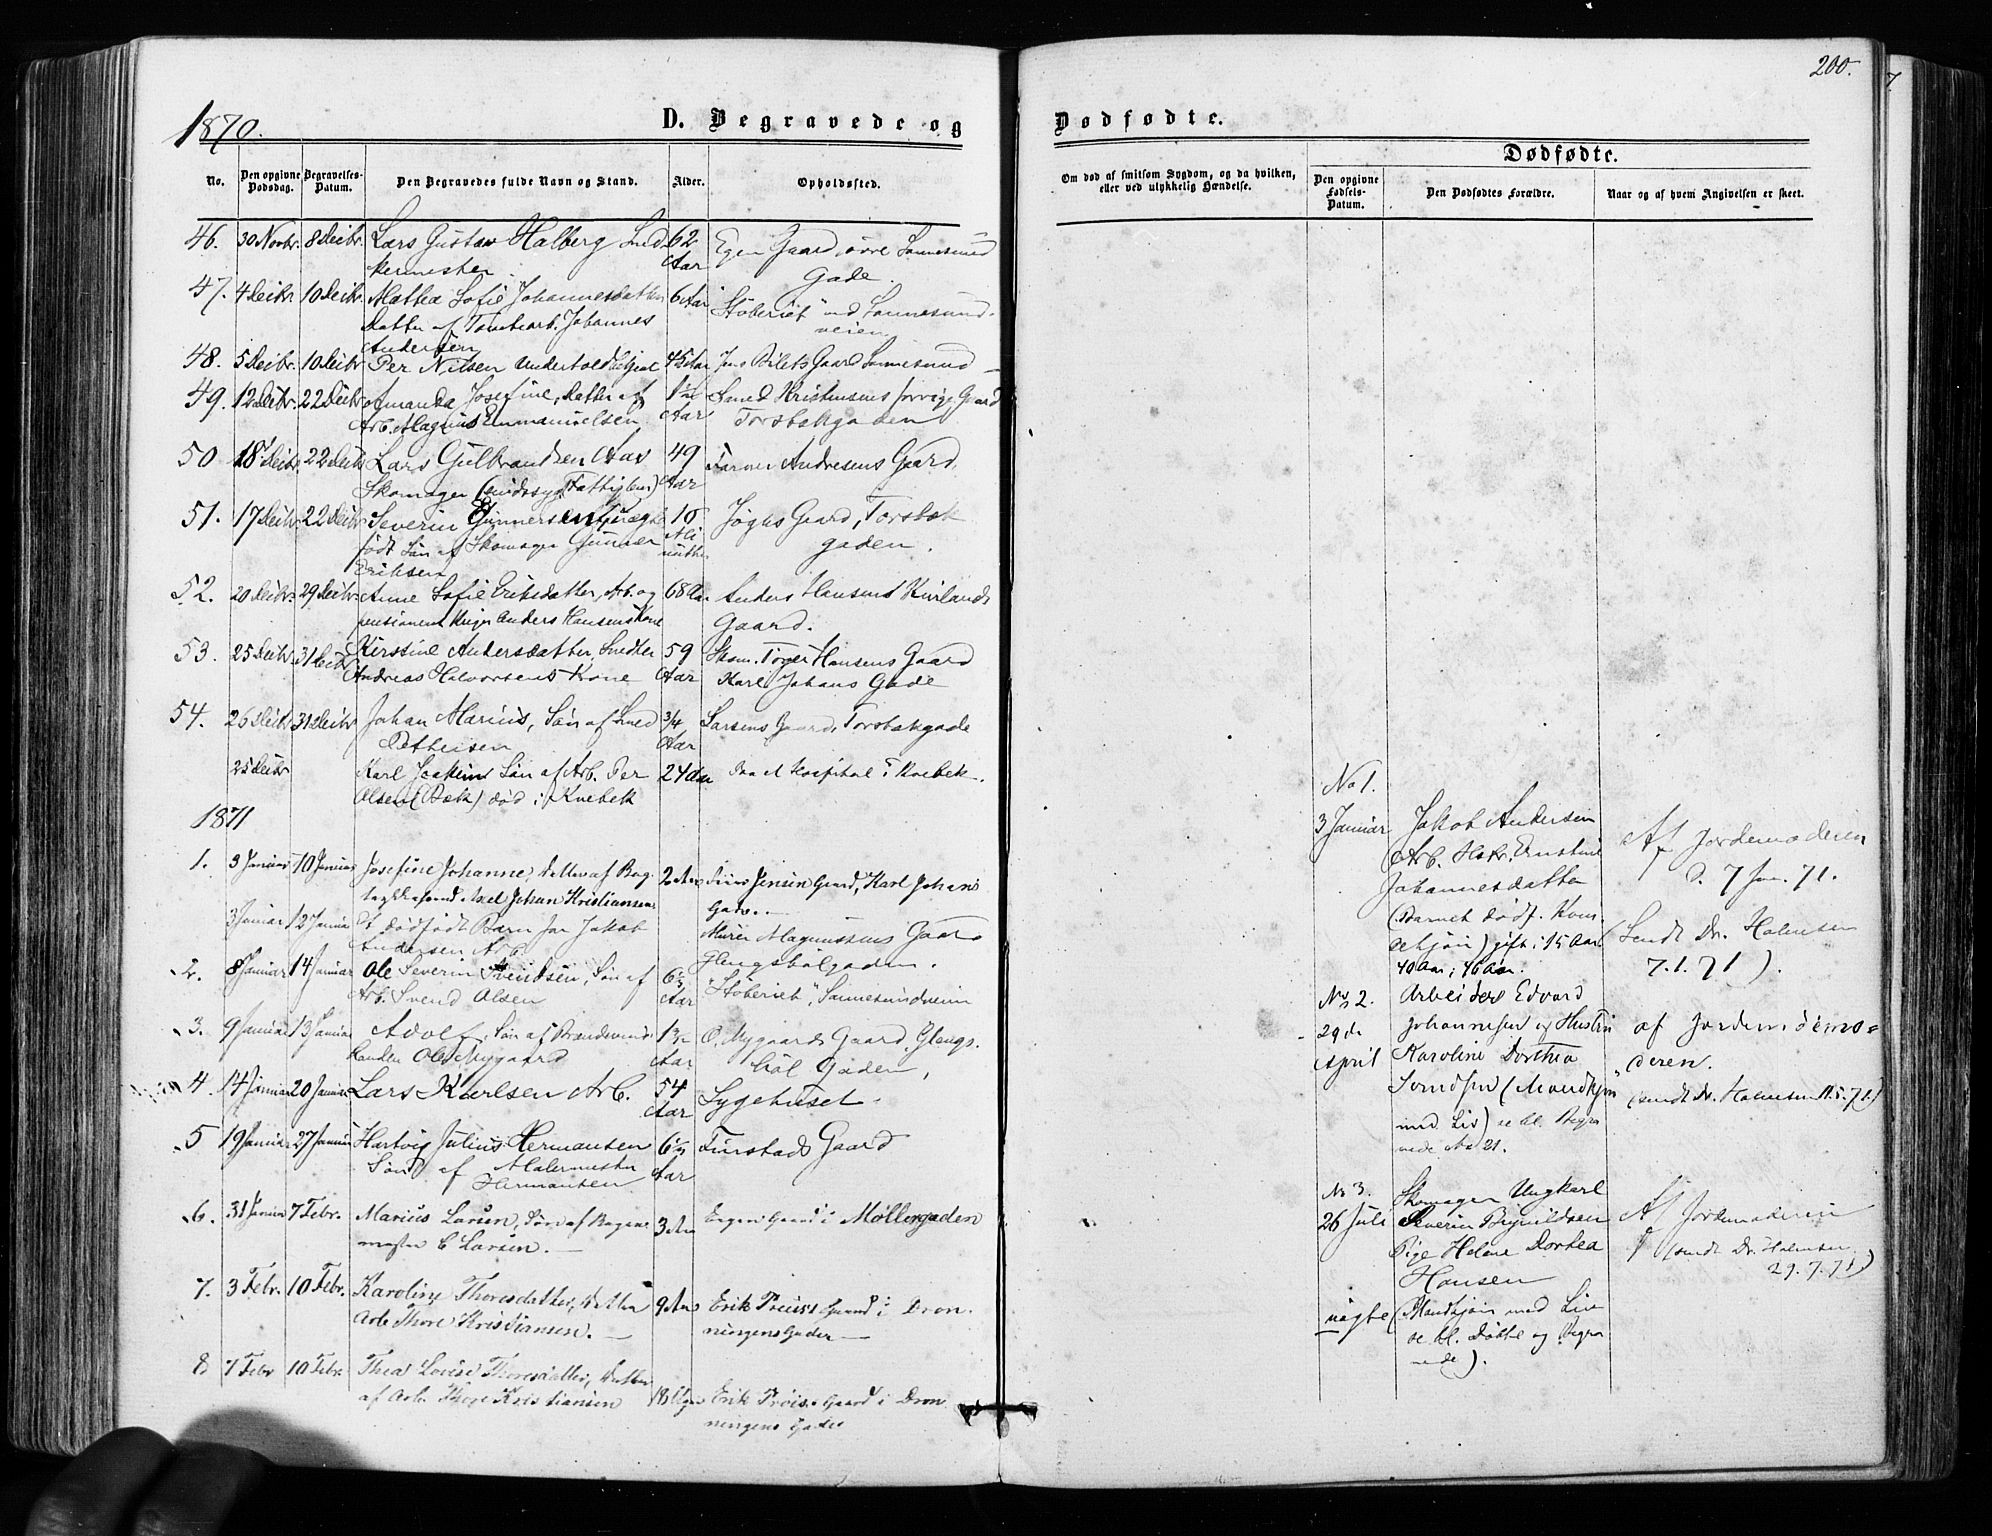 200.
1870.
D. Begravede og
Dødfødte.
No.
Den opgivne Dødsdag.
Begravelses-Datum.
Den Begravedes fulde Navn og Stand.
Alder.
Opholdssted.
Om død af smitsom Sygdom, og da hvilken, eller ved ulykkelig Hændelse.
Dødfødte.
Den opgivne Fødsels-Datum.
Den Dødfødtes Forældre.
Naar og af hvem Angivelsen er skeet.
46. 30 Novbr. 8 Decbr. Lars Gustav Halberg Sned 62 Egen Gaard, øvre Sannesund
kermester Aar Gade
47. 4 Decbr. 10 Decbr. Mathea Sofie Johannesdatter 6 Aar "Støberiet" ved Sannesund
Datter af Tomtearb. Johannes veien
Andersen
48. 5 Decbr. 10 Decbr. Per Nilsen 45 Aar Gaard Sannesund
49. 12 Decbr. 22 Decbr. Amanda Josefine, Datter af 1½ Smed Kristensens forrige Gaard
Arb. Magnus Emmanuelsen Aar Torsbakgaden
50 18 Decbr. 22 Decbr. Lars Gulbrandsen Aas 49 Farver Andresens Gaard,
Skomager (sindssyg Fattiglem) Aar
51. 17 Decbr. 22 Decbr. Severin Gunnersen, uægte 10 Gaard, Torsbak
født Søn af Skomager Gunner Mi gaden.
Eriksen nutter
52. 20 Decbr. 29 Decbr. Anne Sofie Eriksdatter, Arb. og 68 Aar Anders Hansens
Anders Hansens Kone Gaard.
53. 25 Decbr. 31 Decbr. Kirstine Andersdatter, Snedker 59 Skom. Hansens Gaard
Andreas Halvorsens Kone Aar Karl Johans Gade
54. 26 Decbr. 31 Decbr. Johan Marius, Søn af Smed 3/4 Larsens Gaard, Torsbakgade
Pettersen Aar
25 Decbr. Karl Joakim Søn af Arb. Per 24 Aar Paa et Hospital i Kvebek.
Olsen (Bæk) død i Kvebek
1871
1. 3 Januar 10 Januar Josefine Johanne, Datter af Bag 2 Aar Jensen Gaard, Karl Johans
Johan Kristiansen Gade.
3 Januar 12 Januar Et dødfødt Barn for Jakob Murer Magnussens Gaard
Andersen Arb. Glengshølgaden.
2. 8 Januar 14 Januar Ole Severin Svendsen, Søn af 6½ "Støberiet", Sannesundveien
Arb. Svend Olsen Aar
3. 9 Januar 13 Januar Adolf, Søn af Brændevins 1½ O. Mygaards Gaard, Glengs
handler Ole Mygaard Aar høl Gaden,
4. 14 Januar 20 Januar Lars Karlsen Arb. 54 Sygehuset
Aar
5 19 Januar 27 Januar Hartvig Julius Hermansen 6½ Finstads Gaard
Søn af Malermester Aar
Hermansen
6. 31 Januar 7 Febr. Marius Larsen, Søn af Bager 3 Aar Egen Gaard i Møllergaden
mester C Larsen.
7. 3 Febr. 10 Febr. Karoline Thoresdatter, Datter 9 Aar Erik Preiss Gaard i Dron
Arb Thore Kristiansen. ningens Gade
8 7 Febr 10 Febr. Thea Lovise Thoresdatter, Datter
af Arb. Thore Kristiansen 18 Uger Erik Preiss Gaard i Dron
ningens Gade
No 1.
3 Januar Jakob Andersen Af Jordemoderen
Arb. Hstr. Ernstine d. 7 Jan. 71.
Johannesdatter
(Barnet dødf. Kvin (Sendt Dr. Holmsen
dekjøn) gift i 15 Aar 7.1.71).
40 Aar, 46 Aar.
No 2. Arbeider Edvard
29de Johannesen og Hustru af Jordemo
April Karoline Dorthea deren.
Svendsen (Mandkjøn (sendt Dr. Holmsen 11.5.71)
med Liv) se bl. Begra
vede No 21.
No 3. Skomager Ungkarl
26 Juli Severin Brynildsen Af Jordemoderen
Pige Helene Dorthea (sendt Dr. Holmsen
Hansen 29.7.71)
uægte (Mandkjøn med Liv
se bl. Døbte og Begra
vede).